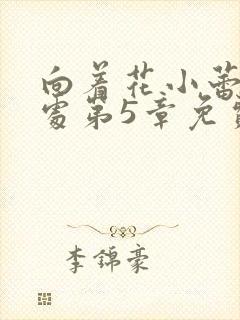 向着花小蕾
处第5章免费
李锦豪